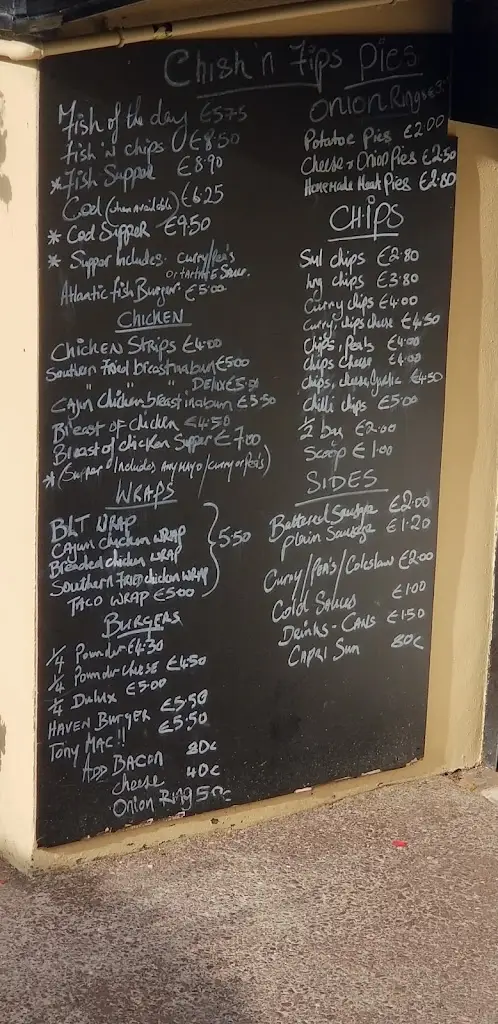 Chish 'n Fips
Fish of the day €5.75
Fish 'n chips €8.50
* Fish Supper €8.90
Cod (when available) €6.25
* Cod Supper €9.50
* Supper Includes: Curry/Pea's
or tartare Sauce.
Atlantic fish Burger €5.00
CHICKEN
Chicken Strips €4.00
Southern Fried breast in a bun €5.00
" " " Deluxe €5.50
Cajun Chicken breast in a bun €5.50
Breast of chicken €4.50
Breast of chicken Supper €7.00
* (Supper Includes Any Mayo/curry or Pea's)
WRAPS
BLT WRAP
Cajun chicken WRAP
Breaded chicken WRAP
Southern FRIED chicken WRAP
5.50
TACO WRAP €5.00
BURGERS
1/4 Pounder €4.30
1/4 Pounder cheese €4.50
1/4 Dulux €5.00
HAVEN BURGER €5.50
Tony MAC!! €5.50
ADD BACON 80c
cheese 40c
Onion Ring 50c
Pies
Onion Rings
Potatoe Pies €2.00
Cheese & Onion Pies €2.50
Homemade Meat Pies €2.80
CHIPS
Sml chips €2.80
lrg chips €3.80
Curry chips €4.00
Curry, chips cheese €4.50
Chips, Peas €4.00
chips cheese €4.00
chips, cheese, Garlic €4.50
Chilli chips €5.00
1/2 bag €2.00
Scoop €1.00
SIDES
Battered Sausage €2.00
Plain Sausage €1.20
Curry/Pea's/Coleslaw €2.00
Cold Sauces €1.00
Drinks - Cans €1.50
Capri Sun 80c